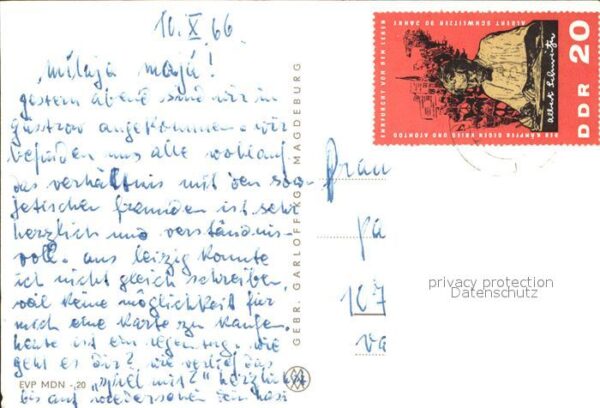 10.X.66
"milaja maja!
gestern abend sind wir in
Güstrow angekommen. wir
befinden uns alle wohlauf.
das verhältnis mit den sow-
jetischer freunden ist sehr
herzlich und verständnis-
voll. aus leizig konnte
ich nicht gleich schreiben,
weil keine möglichkeit für
mich eine karte zu kaufen.
heute ist ein regentag. wie
geht es dir? wie verlief das
"spiel mit?" herzlichst
bis auf wiedersehen dein hasi
EVP MDN -,20
GEBR. GARLOFF KG MAGDEBURG
Frau
pa
107
va
EHRFURCHT VOR DEM LEBEN
ALBERT SCHWEITZER 90 JAHRE
DER KÄMPFER GEGEN KRIEG UND ATOMTOD
Albert Schweitzer
DDR 20
privacy protection
Datenschutz